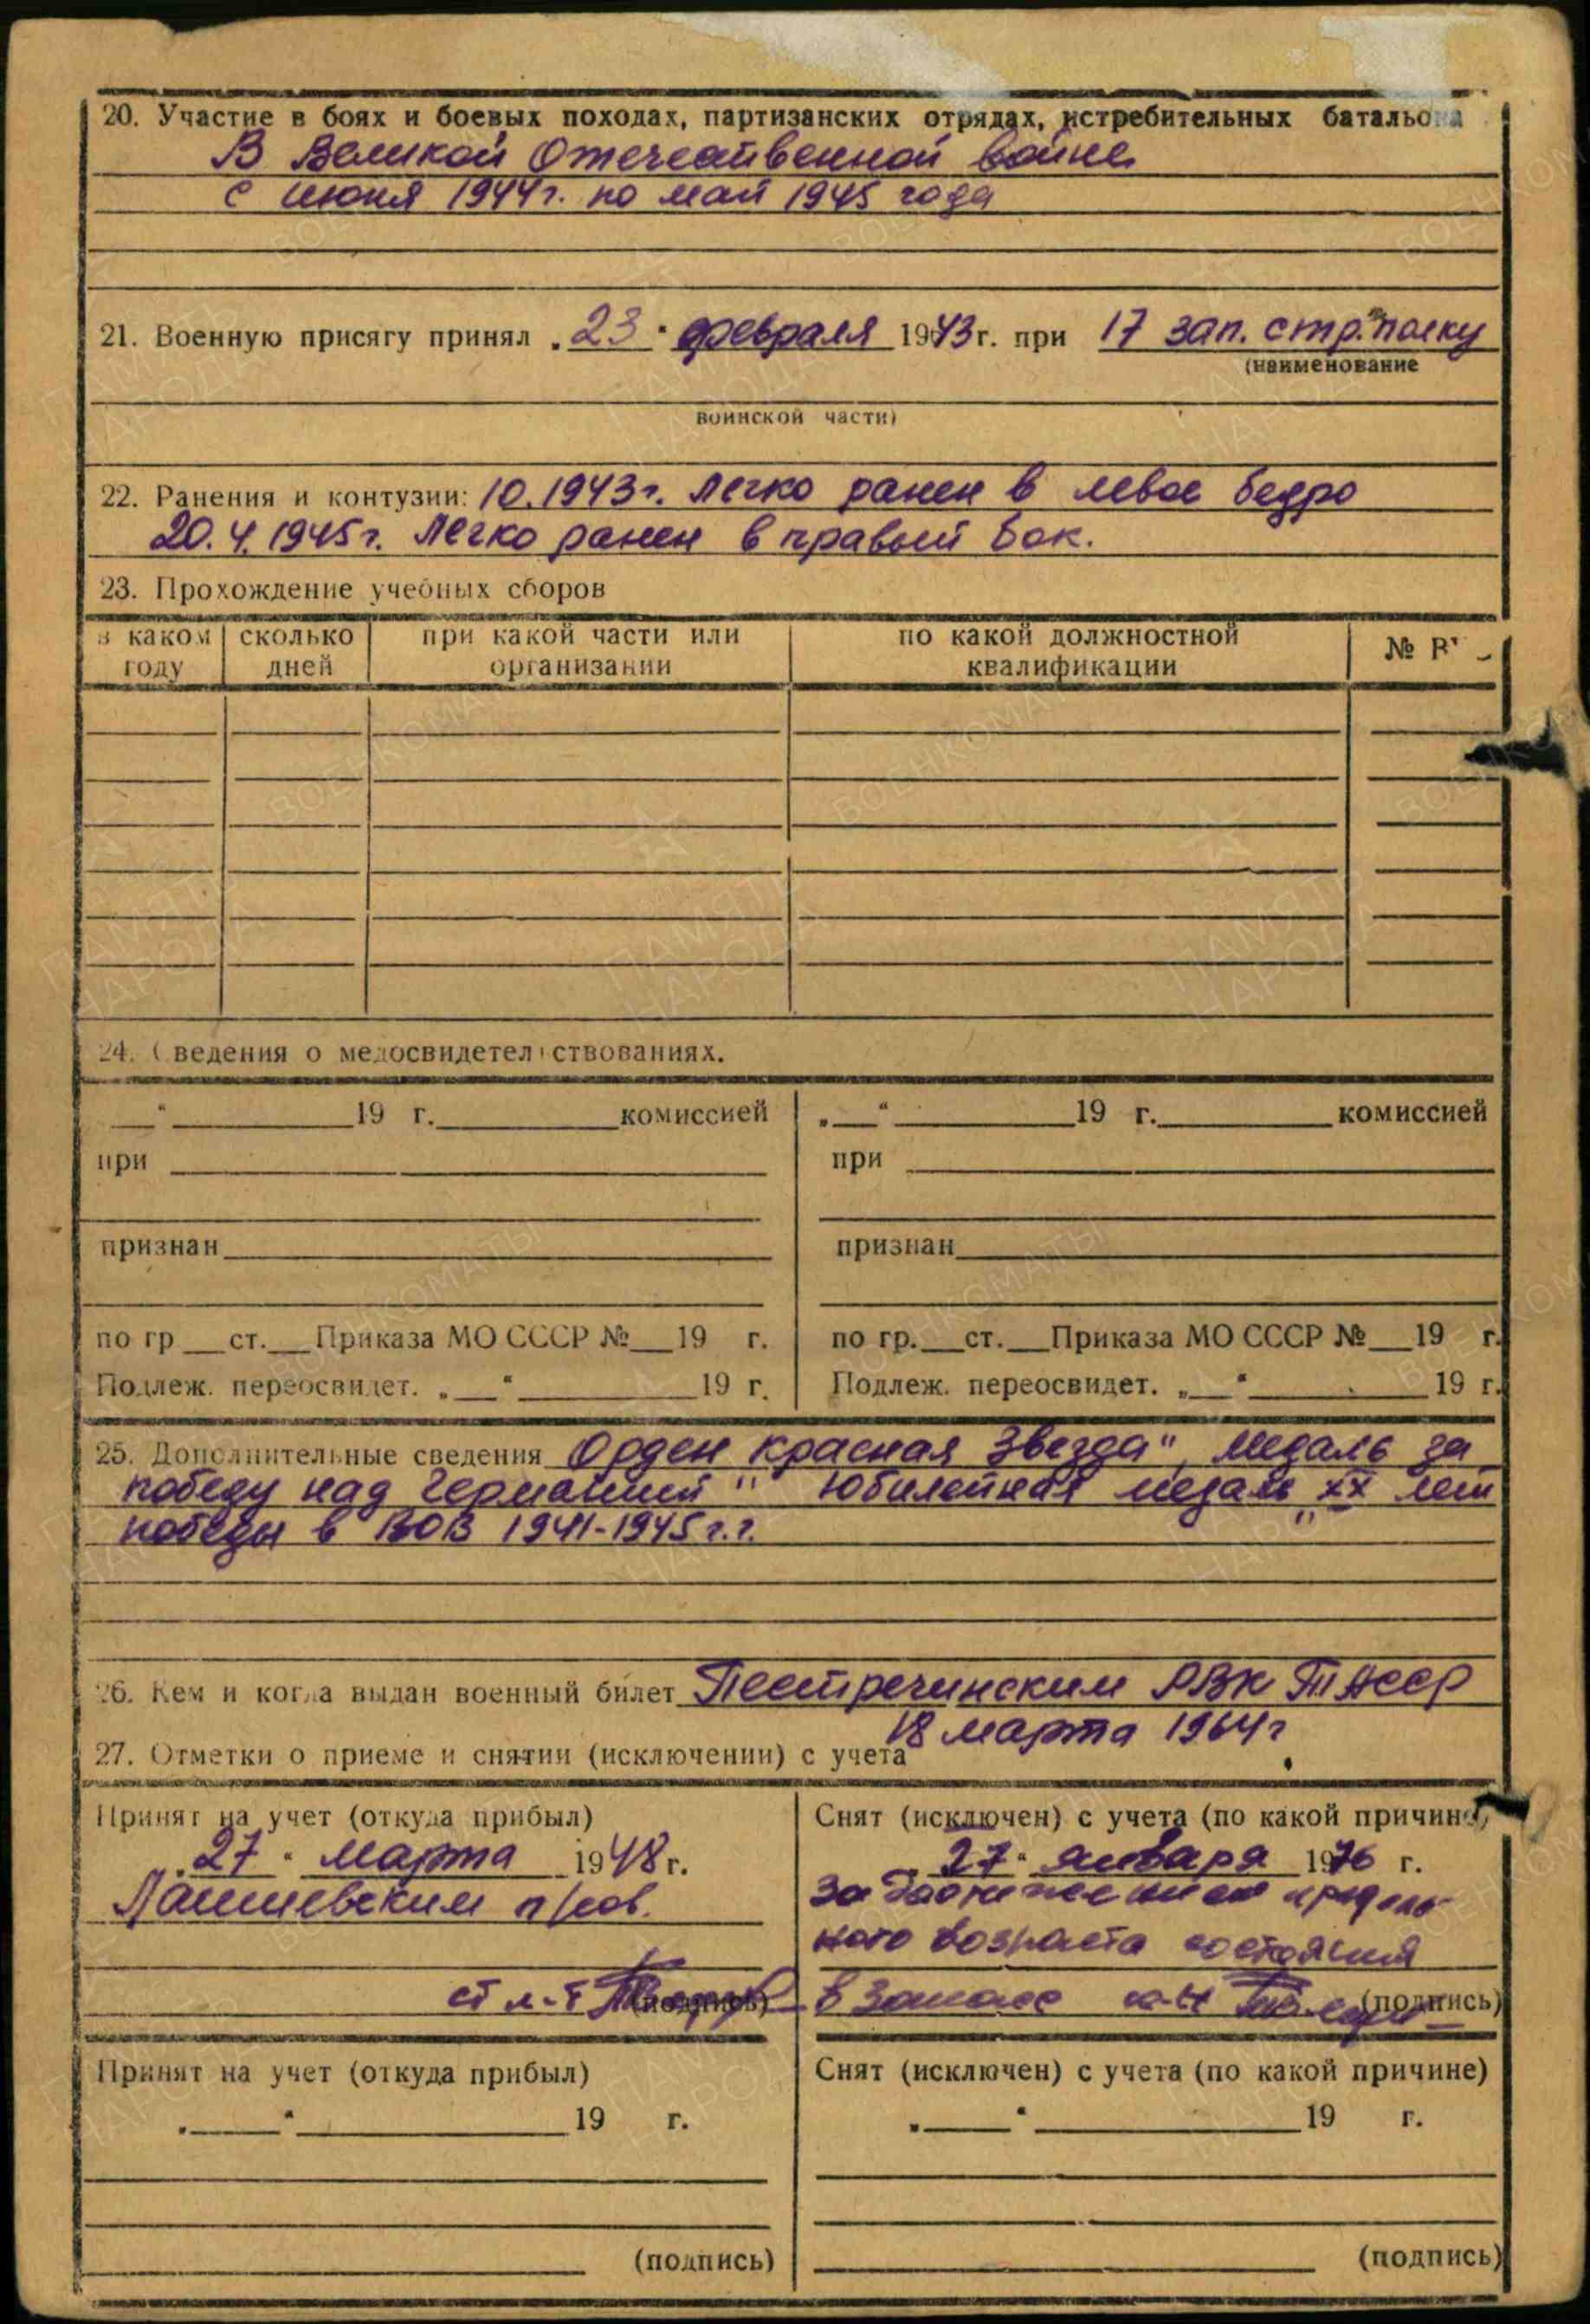 20. Участие в боях и боевых походах, партизанских отрядах, истребительных
В Великой Отечественной войне
с июня 1944г. по май 1945 года
21. Военную присягу принял „23" февраля 1943г. при 17 зап. стр. полку
(наименование
воинской части)
22. Ранения и контузии: 10.1943г. легко ранен в левое бедро
20.4.1945г. легко ранен в правый бок.
23. Прохождение учебных сборов
в каком году | сколько дней | при какой части или организации | по какой должностной квалификации | №
24. Сведения о медосвидетельствованиях.
" 19 г. комиссией | „ " 19 г. комиссией
при | при
признан | признан
по гр ст. Приказа МО СССР № 19 г. | по гр. ст. Приказа МО СССР № 19 г.
Подлеж. переосвидет. „ " 19 г. | Подлеж. переосвидет. „ " 19 г.
25. Дополнительные сведения Орден Красная Звезда", медаль за
победу над Германией" Юбилейная медаль „XX лет
победы в ВОВ 1941-1945г.г.
26. Кем и когда выдан военный билет Пестречинским РВК ТАССР
18 марта 1964г
27. Отметки о приеме и снятии (исключении) с учета
Принят на учет (откуда прибыл)
„27" марта 1948г.
Лаишевским
ст л-т (подпись)
Снят (исключен) с учета (по какой причине)
„27" января 1976 г.
за достижением предель-
ного возраста состояния
в запасе (подпись)
Принят на учет (откуда прибыл)
„ " 19 г.
(подпись)
Снят (исключен) с учета (по какой причине)
„ " 19 г.
(подпись)
ПАМЯТЬ НАРОДА
ВОЕНКОМАТЫ